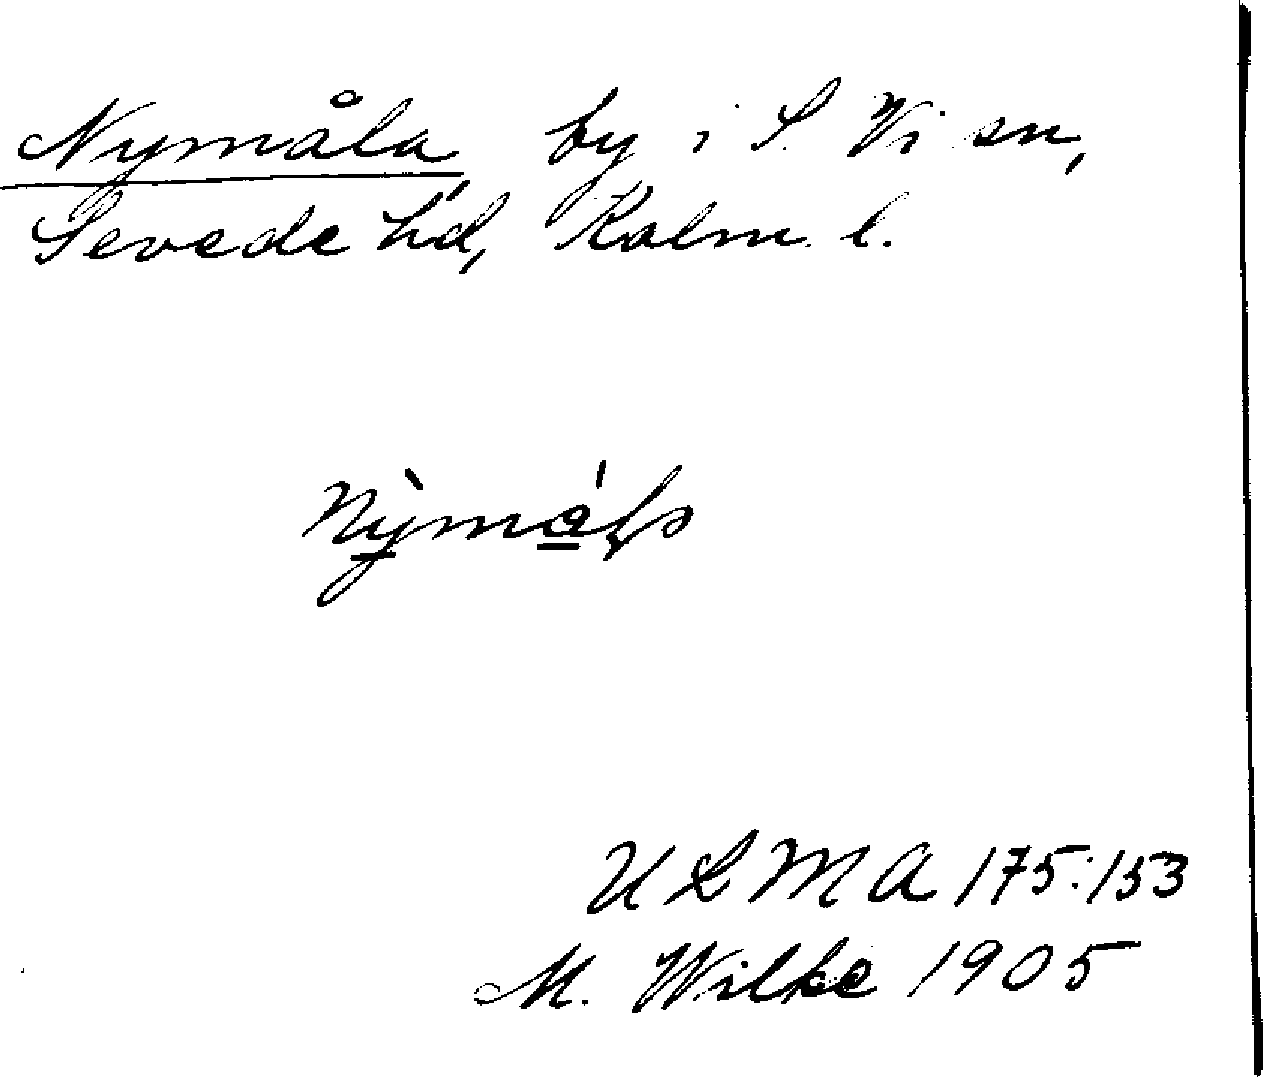 Nymåla by i S. Vi sn,
Sevede hd, Kalm. l.
ULMA 175:153
M. Wilke 1905